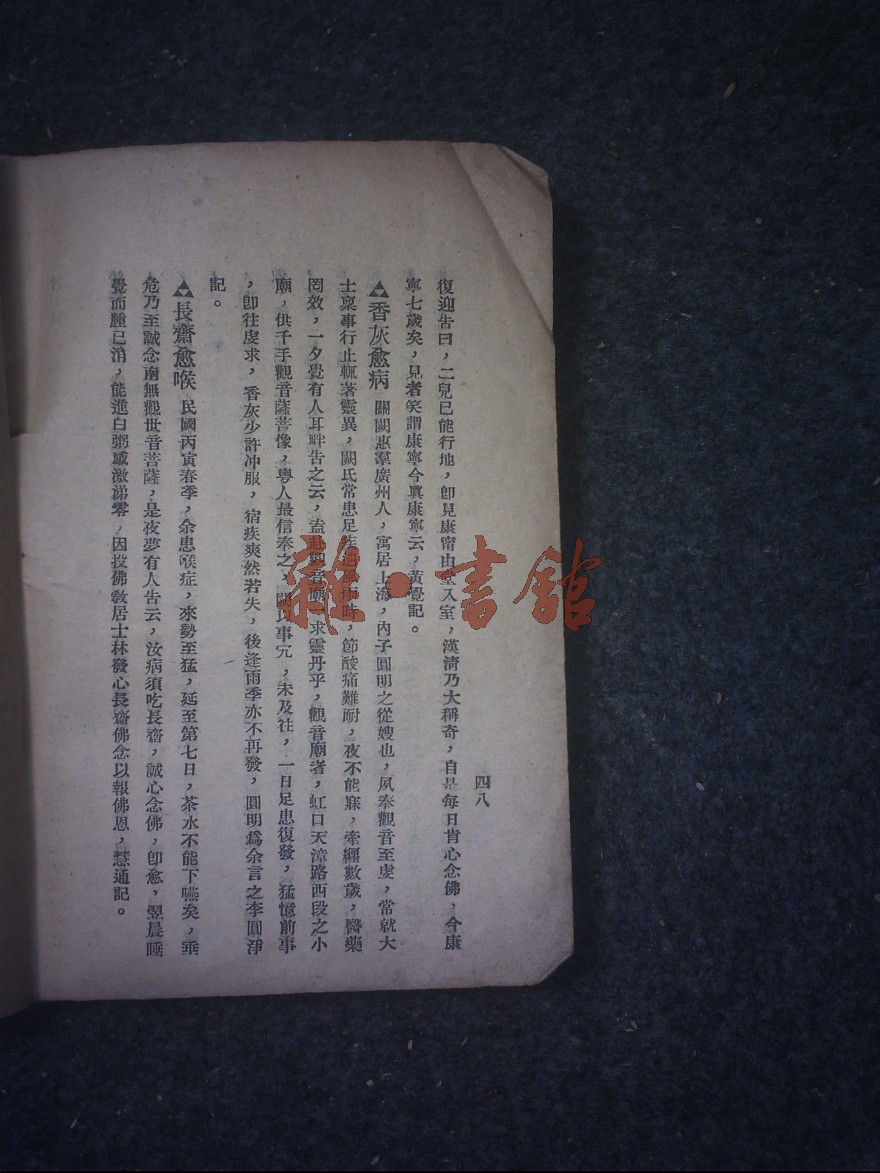 四八
復迎告曰，二兒已能行地，卽見康甯由堂入室，漢淸乃大稱奇，自是每日肯心念佛，今康
寧七歲矣，見者笑謂康寧今眞康寧云，黃覺記。
▲香灰愈病　關闕惠羣廣州人，寓居上海，內子圓明之從嫂也，夙奉觀音至虔，常就大
士稟事行止輒著靈異，闕氏常患足疾遇雨時，節酸痛難耐，夜不能寐，牽纏數歲，醫藥
罔效，一夕覺有人耳畔告之云，盍赴觀音廟，求靈丹乎，觀音廟者，虹口天潼路西段之小
廟，供千手觀音薩菩像，粵人最信奉之，闕氏事冗，未及往，一日足患復發，猛憶前事
，卽往虔求，香灰少許冲服，宿疾爽然若失，後逢雨季亦不再發，圓明爲余言之李圓淨
記。
▲長齋愈喉　民國丙寅春季，余患喉症，來勢至猛，延至第七日，茶水不能下嚥矣，垂
危乃至誠念南無觀世音菩薩，是夜夢有人告云，汝病須吃長齋，誠心念佛，卽愈，翌晨睡
覺而腫已消，能進白粥感激涕零，因投佛敎居士林發心長齋佛念以報佛恩，慧通記。
雜·書館